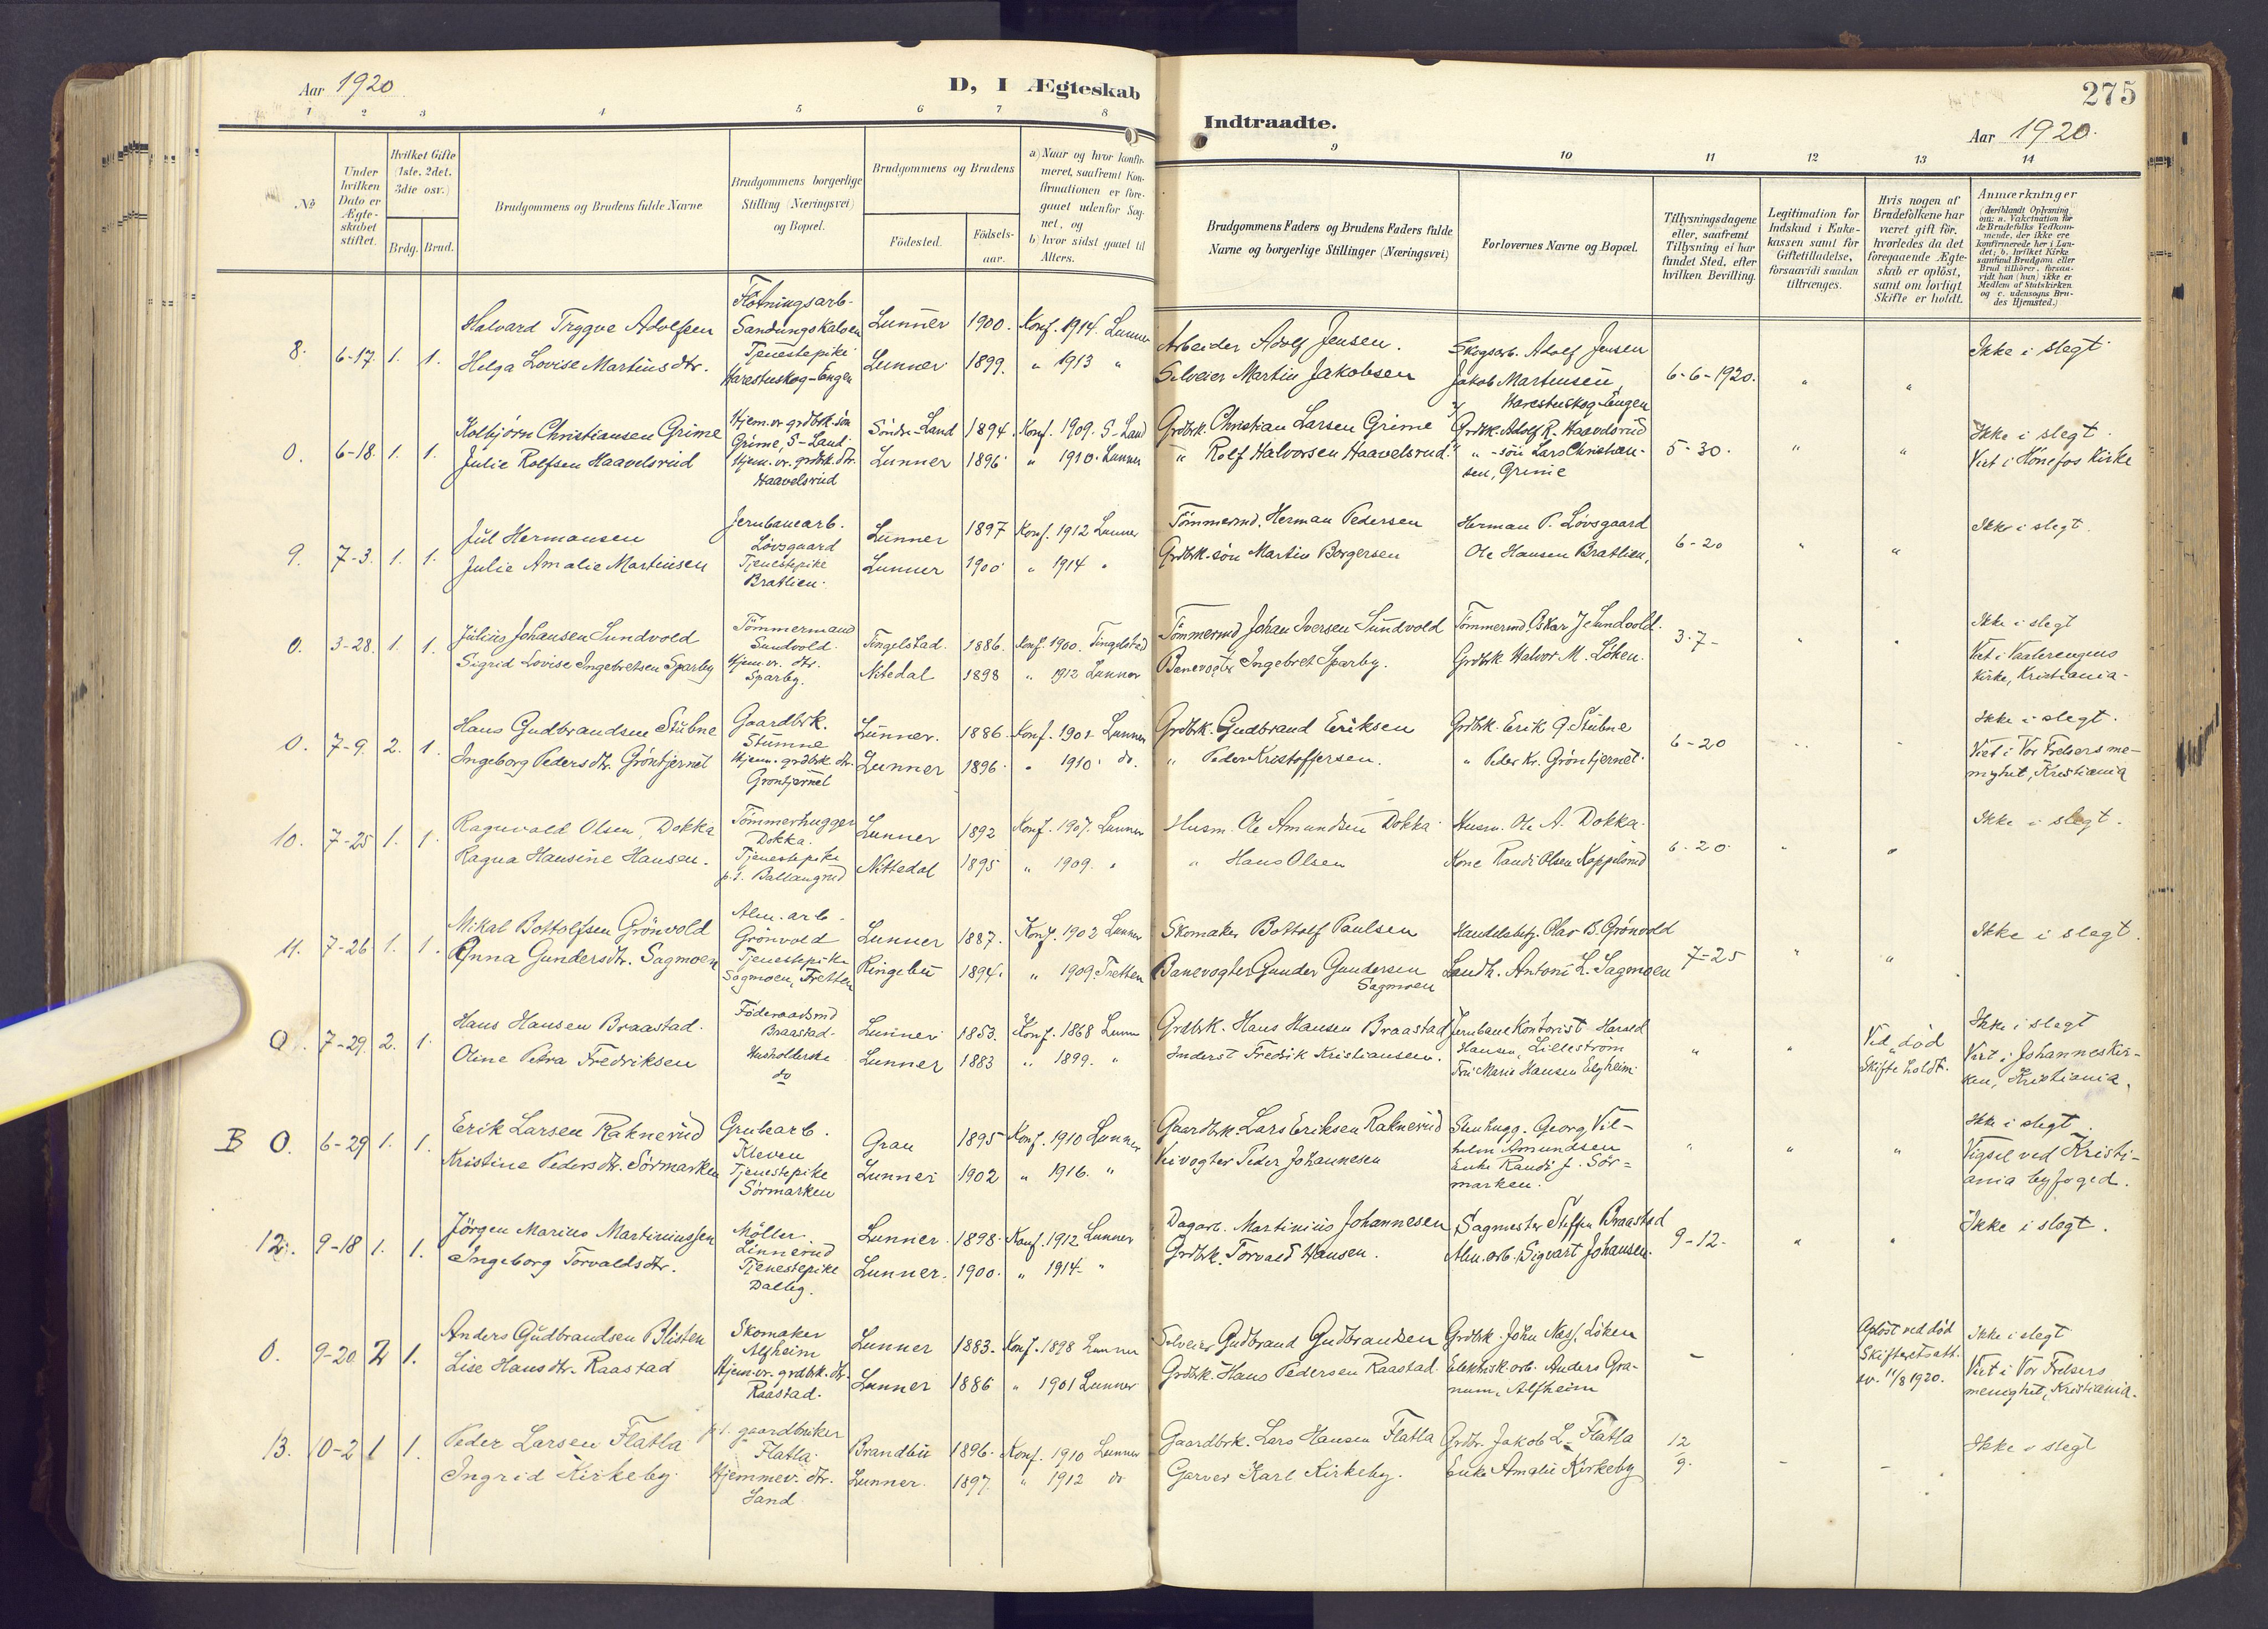 Aar 1920
D, I Ægteskab
1 2 3 4 5 6 7 8
No
Under hvilken Dato er Ægteskabet stiftet.
Hvilket Gifte (1ste, 2det, 3die osv.)
Brdg. Brud.
Brudgommens og Brudens fulde Navne
Brudgommens borgerlige Stilling (Næringsvei) og Bopæl.
Brudgommens og Brudens
Födested. Födsels-aar.
a) Naar og hvor konfirmeret, saafremt Konfirmationen er foregaaet udenfor Sognet, og
b) hvor sidst gaaet til Alters.
Indtraadte.
275
Aar 1920.
9 10 11 12 13 14
Brudgommens Faders og Brudens Faders fulde Navne og borgerlige Stillinger (Næringsvei)
Forlovernes Navne og Bopæl.
Tillysningsdagene eller, saafremt Tillysning ei har fundet Sted, efter hvilken Bevilling.
Legitimation for Indskud i Enkekassen samt for Giftetilladelse, forsaavidt saadan tiltrænges.
Hvis nogen af Brudefolkene har været gift før, hvorledes da det foregaaende Ægteskab er oplöst, samt om lovligt Skifte er holdt.
Anmærkninger
(deriblandt Oplysning om: a. Vakcination for de Brudefolks Vedkommende, der ikke ere konfirmerede her i Landet; b. hvilket Kirkesamfund Brudgom eller Brud tilhörer, forsaavidt han (hun) ikke er Medlem af Statskirken og c. udensogns Brudes Hjemsted.)
8. 6-17. 1. 1.
Halvard Tryggve Adolfsen
Flötningsarb. Sandungskalven
Lunner 1900. Konf. 1914. Lunner
Arbeider Adolf Jensen.
Skogsarb. Adolf Jensen
6-6-1920. " "
Ikke i slegt
Helga Lovise Martinsdtr.
Tjenestepike Harestuskog-Engen
Lunner 1899. " 1913 "
Selveier Martin Jakobsen
Jakob Martinsen, Harestuskog-Engen
0. 6-18. 1. 1.
Kolbjörn Christiansen Grime
Hjem.v. grdbrk. sön Grime, S-Land.
Söndre-Land 1894. Konf. 1909. S-Land
Grdbrk. Christian Larsen Grime
Grdbrk. Adolf R. Haavelsrud
5-30. " "
Ikke i slegt.
Julie Rolfsen Haavelsrud
Hjem. vr. grdbrk. dtr. Haavelsrud
Lunner 1896. " 1910. Lunner
" Rolf Halvorsen Haavelsrud.
" - sön Lars Christiansen, Grime
Viet i Hönefos Kirke
9. 7-3. 1. 1.
Jul Hermansen
Jernbanearb. Lövsgaard
Lunner 1897 Konf. 1912 Lunner
Tömmermd. Herman Pedersen
Herman P. Lövsgaard
6-20 " "
Ikke i slegt.
Julie Amalie Martinsen
Tjenestepike Bratlien.
Lunner 1900 " 1914 "
Grdbrk. sön Martin Borgersen
Ole Hansen Bratlien,
0. 3-28. 1. 1.
Julius Johansen Sundvold
Tömmermand Sundvold.
Tingelstad. 1886. Konf. 1900. Tingelstad
Tömmermd Johan Iversen Sundvold
Tömmermd. Oskar J. Sundvold.
3-7- " "
Ikke i slegt
Sigrid Lovise Ingebretsen Sparby
Hjem.vr. dtr. Sparby.
Nitedal 1898 " 1912 Lunner
Banevogter Ingebret Sparby.
Grdbrk. Halvor M. Löken.
Viet i Vaalerengens Kirke, Kristiania.
0. 7-9. 2. 1.
Hans Gudbrandsen Stubne
Gaardbrk. Stumne
Lunner. 1886. Konf. 1901. Lunner
Grdbrk. Gudbrand Eriksen
Grdbrk. Erik G. Stubne
6-20
Ikke i slegt.
Ingeborg Pedersdtr. Gröntjernet
Hjem. grdbrk. dtr. Gröntjernet
Lunner 1896. " 1910. do.
" Peder Kristoffersen.
" Peder Kr. Gröntjernet.
Viet i Vor Frelsers menighet, Kristiania
10. 7-25 1. 1.
Ragnvald Olsen Dokka
Tömmerhugger Dokka.
Lunner 1892 Konf. 1907. Lunner
Husm. Ole Amundsen Dokka
Husm. Ole A. Dokka.
6-20. " "
Ikke i slegt.
Ragna Hansine Hansen.
Tjenestepike p.t. Ballangrud
Nittedal 1895 " 1909. "
" Hans Olsen
Kone Randi Olsen Koppelsrud
11. 7-26 1. 1.
Mikal Bottolfsen Grönvold
Alm. arb. Grönvold
Lunner 1887. Konf. 1902 Lunner
Skomaker Bottolf Paulsen
Handelsbetj. Olav B. Grönvold
7-25 " "
Ikke i slegt.
Anna Gundersdtr. Sagmoen
Tjenestepike Sagmoen, Tretten
Ringebu 1894. " 1909. Tretten
Banevogter Gunder Gundersen Sagmoen
Landh. Antoni L. Sagmoen
0. 7-29. 2. 1.
Hans Hansen Braastad.
Föderaadsmd Braastad.
Lunner 1853. Konf. 1868 Lunner
Grdbrk. Hans Hansen Braastad
Jernbane Kontorist Harald Hansen, Lilleström
" "
Ved död Skifte holdt.
Ikke i slegt
Oline Petra Fredriksen
Husholderske do
Lunner 1883 " 1899. "
Inderst Fredrik Kristiansen.
Fru Marie Hansen Elgheim
Viet i Johanneskirken, Kristiania.
B 0. 6-29 1. 1.
Erik Larsen Raknerud
Grubearb. Kleven
Gran 1895 Konf. 1910 Lunner
Gaardbrk. Lars Eriksen Raknerud
Stenhugg. Georg Vilhelm Amundsen
" " "
Ikke i slegt.
Kristine Pedersdtr. Sörmarken
Tjenestepike Sörmarken
Lunner 1902 " 1916. "
Peder Johannesen
Enke Randi J. Sörmarken.
Vigsel ved Kristiania byfoged.
12. 9-18 1. 1.
Jörgen Marius Martiniussen
Möller Linnerud
Lunner. 1898. Konf. 1912 Lunner
Dagarb. Martinius Johannesen
Sagmester Steffen Braastad
9-12. " "
Ikke i slegt.
Ingeborg Torvaldsdtr.
Tjenestepike Dalleg.
Lunner. 1900. " 1914. "
Grdbrk. Torvald Hansen.
Alm. arb. Sigvart Johansen.
0. 9-20 2. 1.
Anders Gudbrandsen Blisten
Skomaker Alfheim
Lunner 1883. Konf. 1898 Lunner
Selveier Gudbrand Gudbrandsen
Grdbrk. John Næss. Löken
-
Oplöst ved död Skifteretsatt. av. 11/8 1920.
Ikke i slegt
Lise Hansdtr. Raastad
Hjem.vr. grdbrk. dtr. Raastad.
Lunner 1886 " 1901 Lunner
Grdbrk. Hans Pedersen Raastad.
Elektrisk arb. Anders Granum, Alfheim
Viet i Vor Frelsers menighet, Kristiania.
13. 10-2 1 1.
Peder Larsen Flatla
p.t. gaardbruker Flatla.
Brandbu 1896. Konf. 1910 Lunner
Gaardbrk. Lars Hansen Flatla
Grdbr. Jakob L. Flatla
12/9. - -
Ikke i slegt
Ingrid Kirkeby.
Hjemmev. dtr. Sand
Lunner. 1897. " 1912 do
Garver Karl Kirkeby.
Enke Amalie Kirkeby